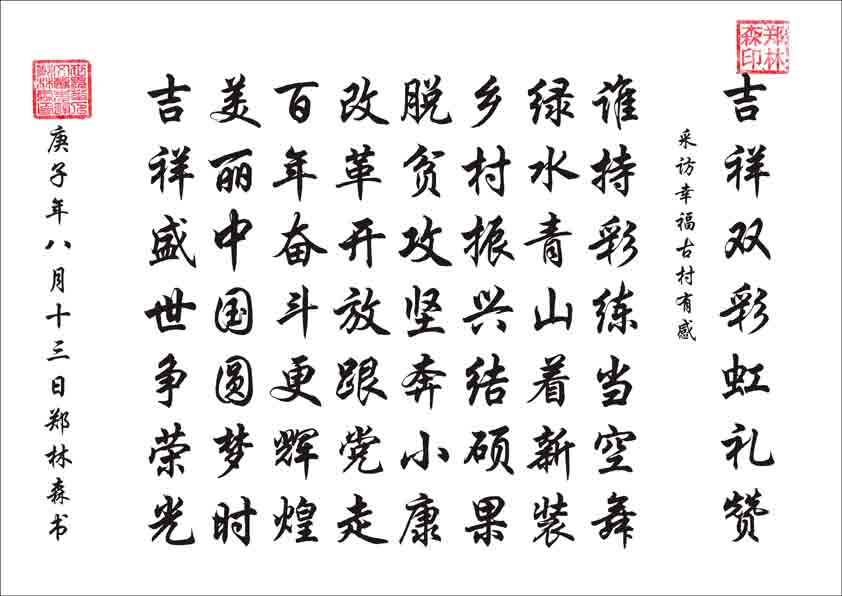 郑林
森印
吉祥双彩虹礼赞
采访幸福古村有感
谁持彩练当空舞
绿水青山着新装
乡村振兴结硕果
脱贫攻坚奔小康
改革开放跟党走
百年奋斗更辉煌
美丽中国圆梦时
吉祥盛世争荣光
庚子年八月十三日郑林森书